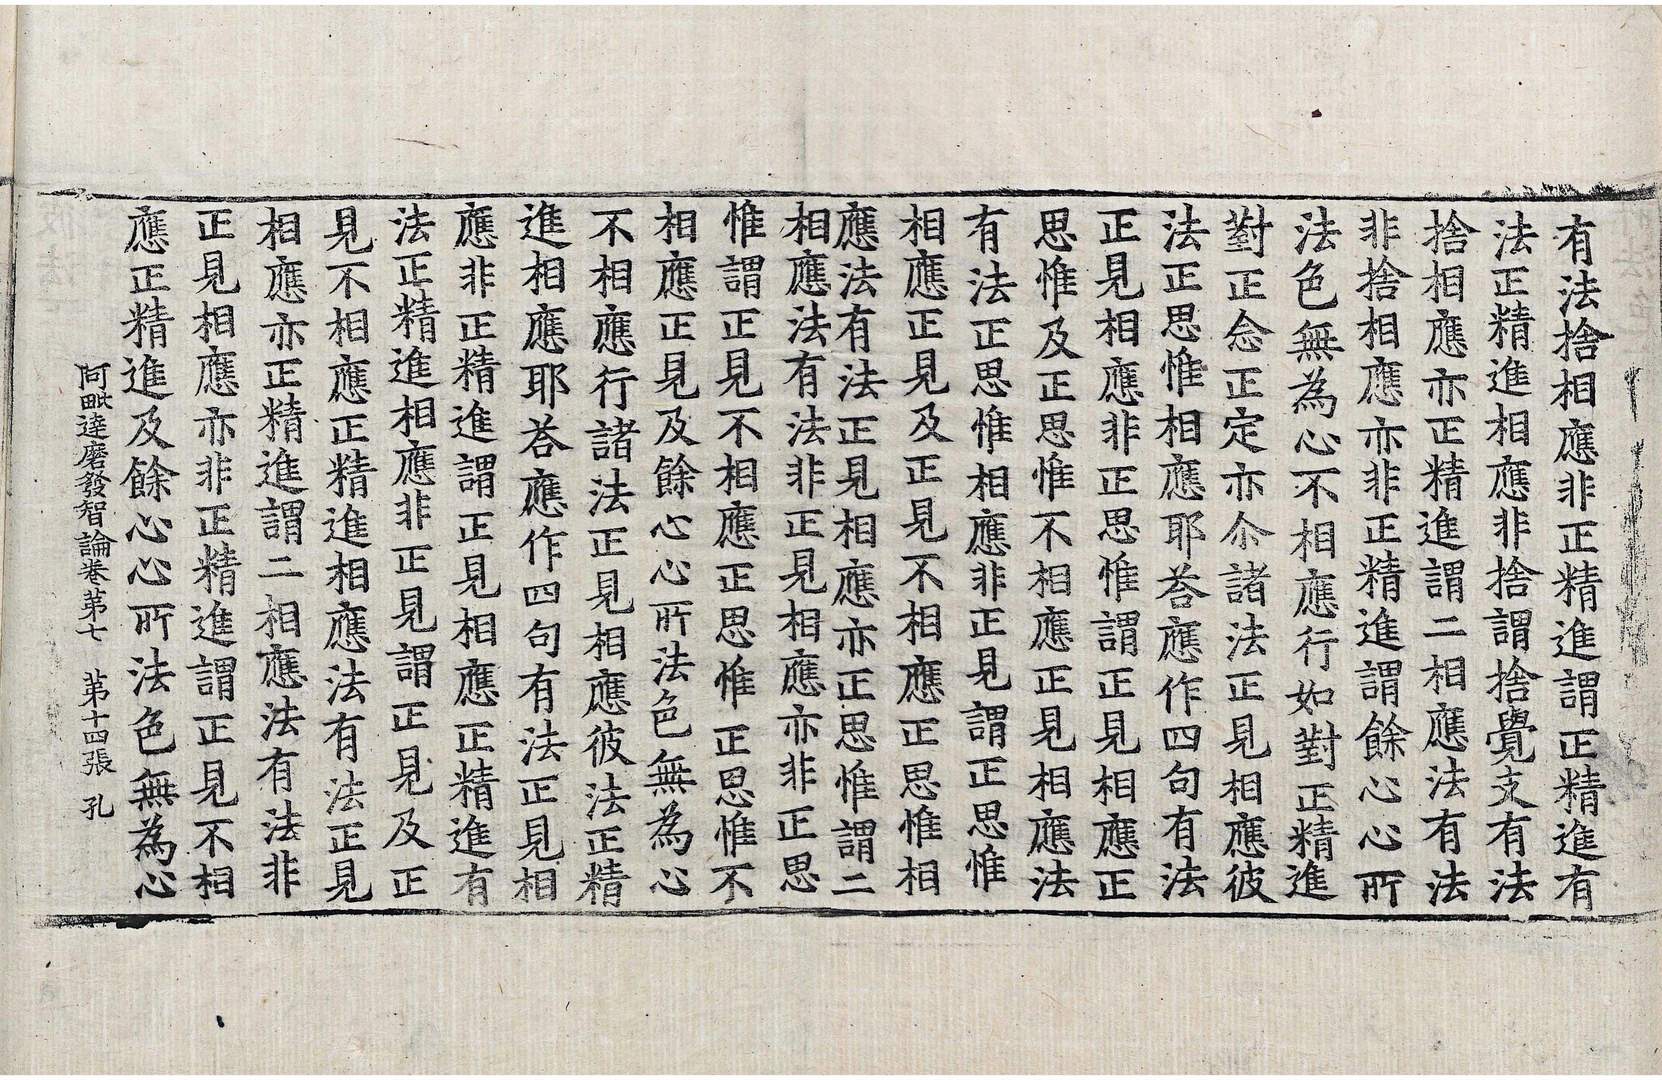 有法捨相應非正精進謂正精進有
法正精進相應非捨謂捨覺支有法
捨相應亦正精進謂二相應法有法
非捨相應亦非正精進謂餘心心所
法色無為心不相應行如對正精進
對正念正定亦尒諸法正見相應彼
法正思惟相應耶荅應作四句有法
正見相應非正思惟謂正見相應正
思惟及正思惟不相應正見相應法
有法正思惟相應非正見謂正思惟
相應正見及正見不相應正思惟相
應法有法正見相應亦正思惟謂二
相應法有法非正見相應亦非正思
惟謂正見不相應正思惟正思惟不
相應正見及餘心心所法色無為心
不相應行諸法正見相應彼法正精
進相應耶荅應作四句有法正見相
應非正精進謂正見相應正精進有
法正精進相應非正見謂正見及正
見不相應正精進相應法有法正見
相應亦正精進謂二相應法有法非
正見相應亦非正精進謂正見不相
應正精進及餘心心所法色無為心
阿毗達磨發智論卷第七 第十四張 孔